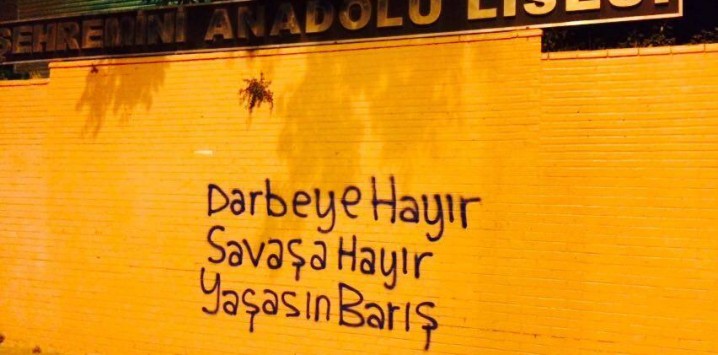 ŞEHREMİNİ ANADOLU LİSESİ
Darbeye Hayır
Savaşa Hayır
Yaşasın Barış